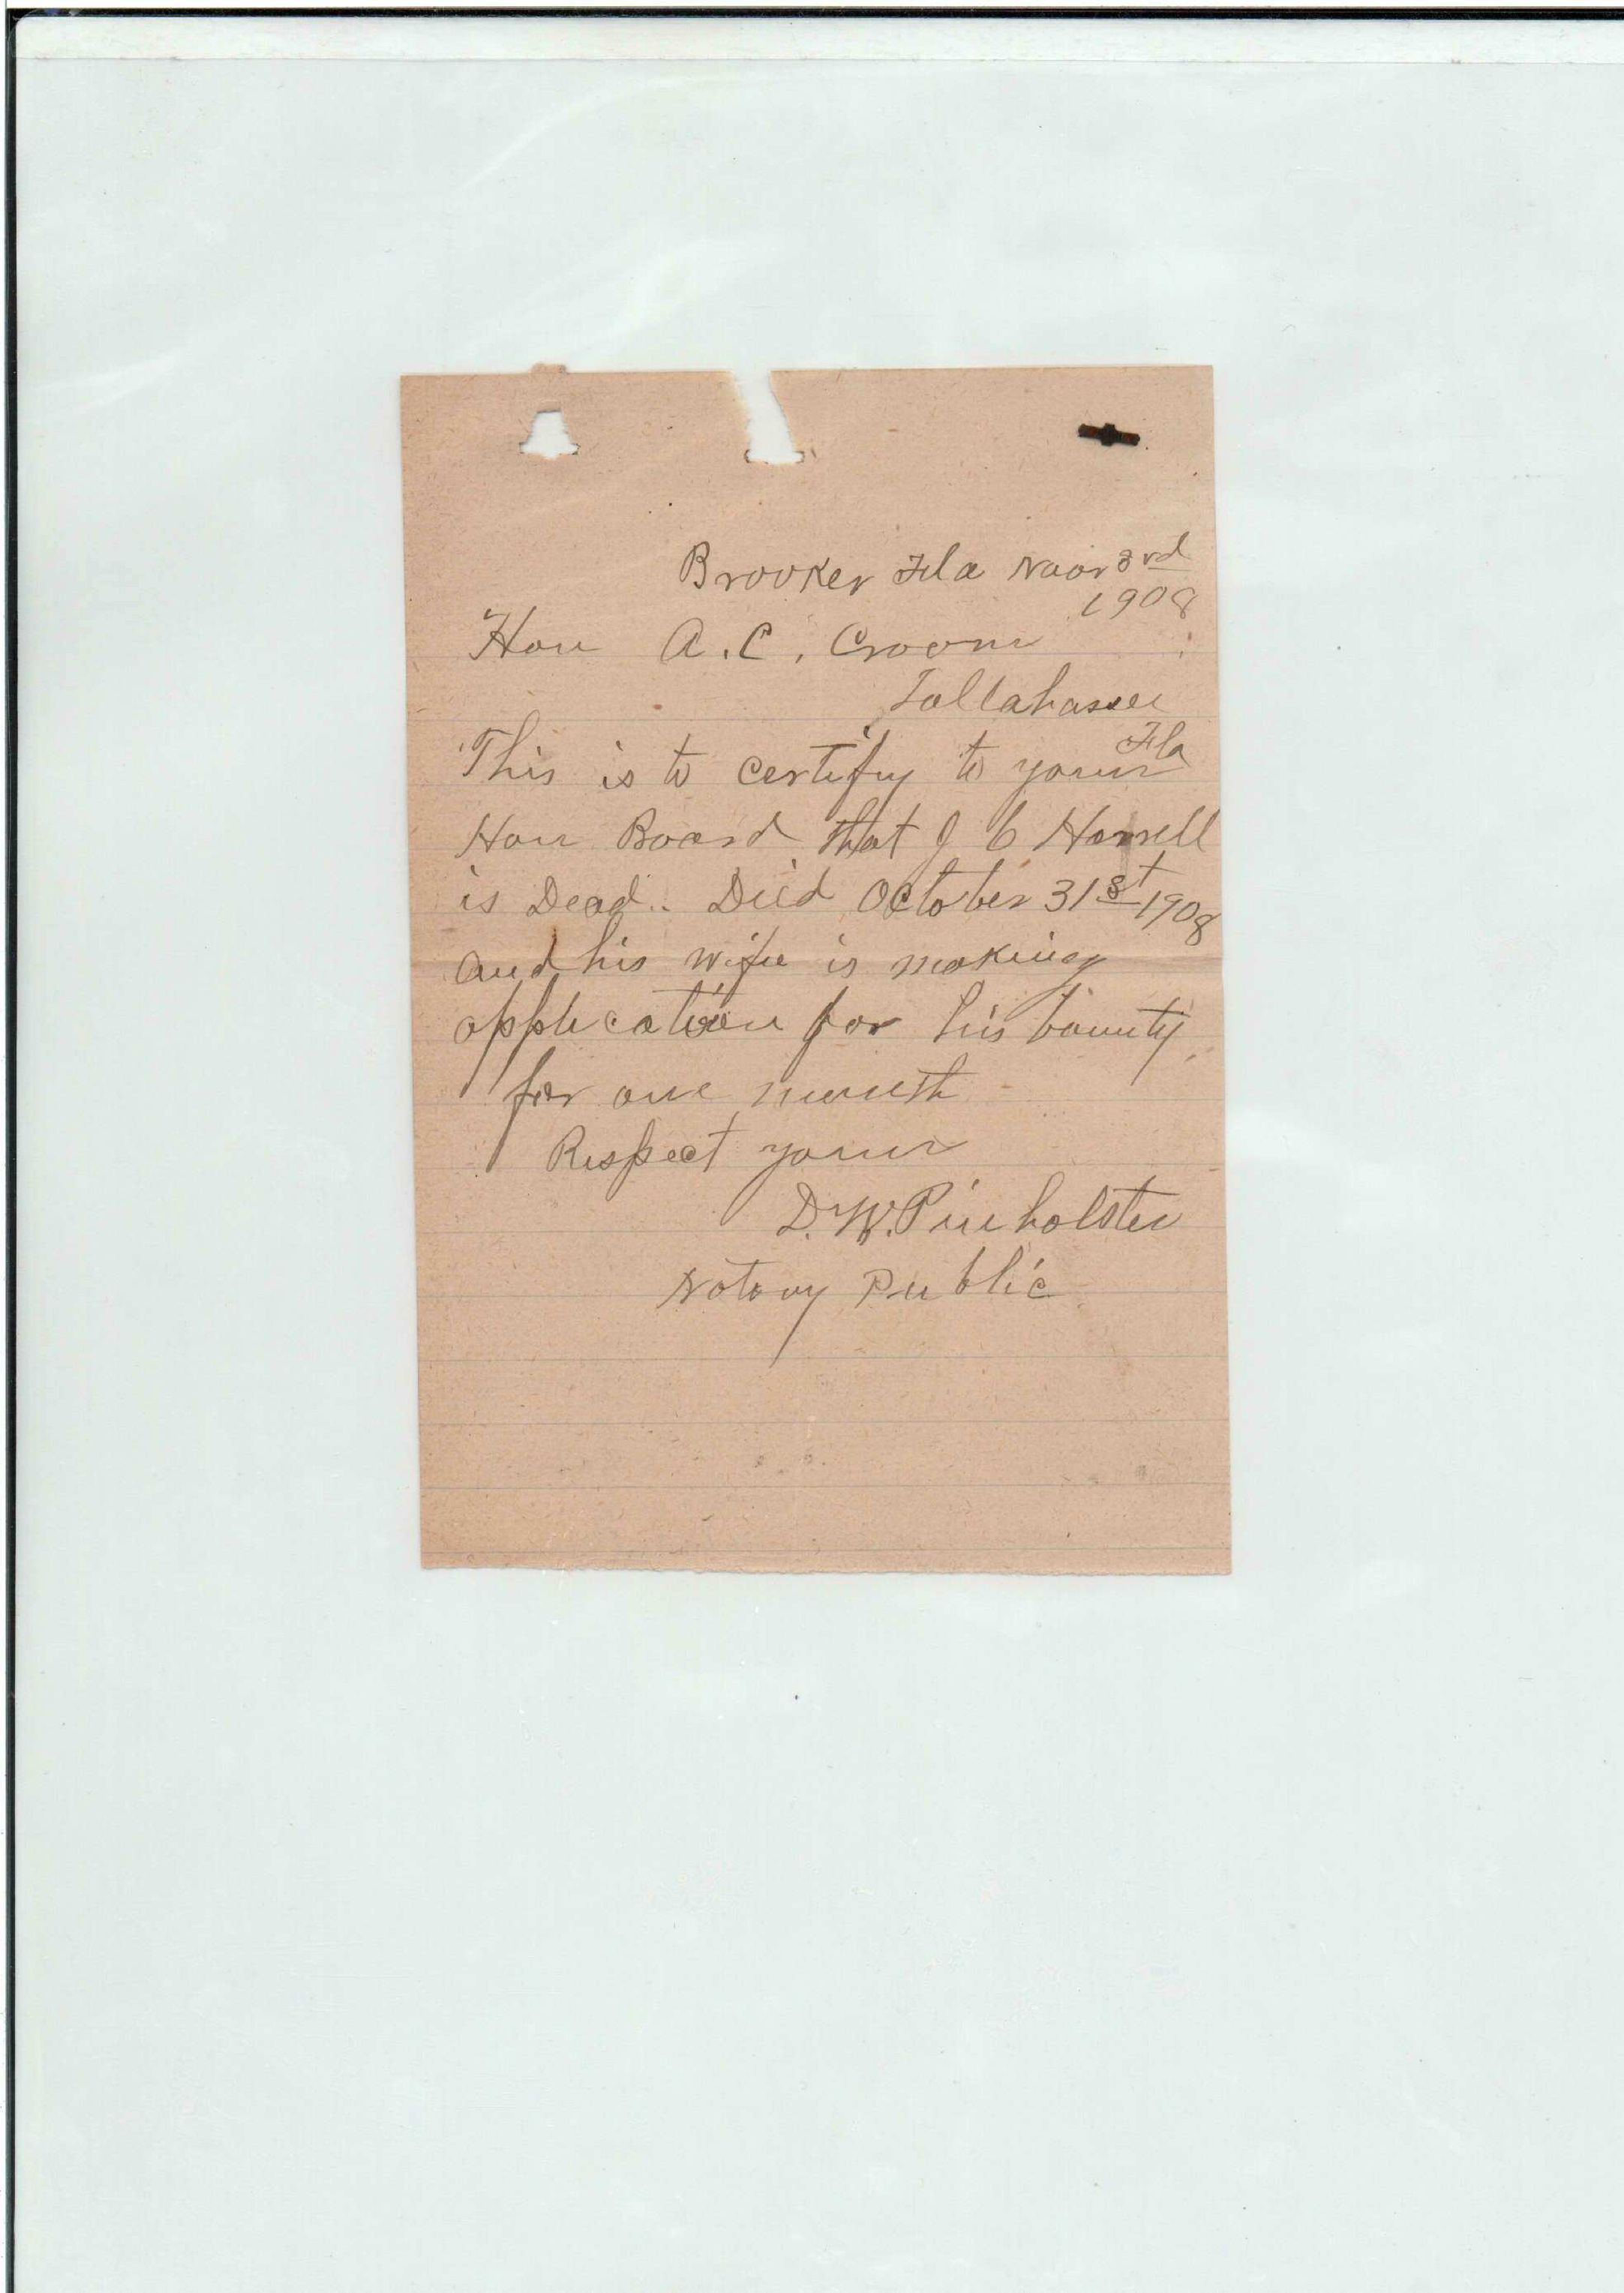 Brooker Fla Nov 3rd
1908
Hon A.C. Croom
Tallahassee
Fla
This is to certify to your
Hon Board that J C Harrell
is Dead. Died October 31st 1908
and his wife is making
application for his bounty
for one month
Respect yours
D.W. Pinholster
Notary Public